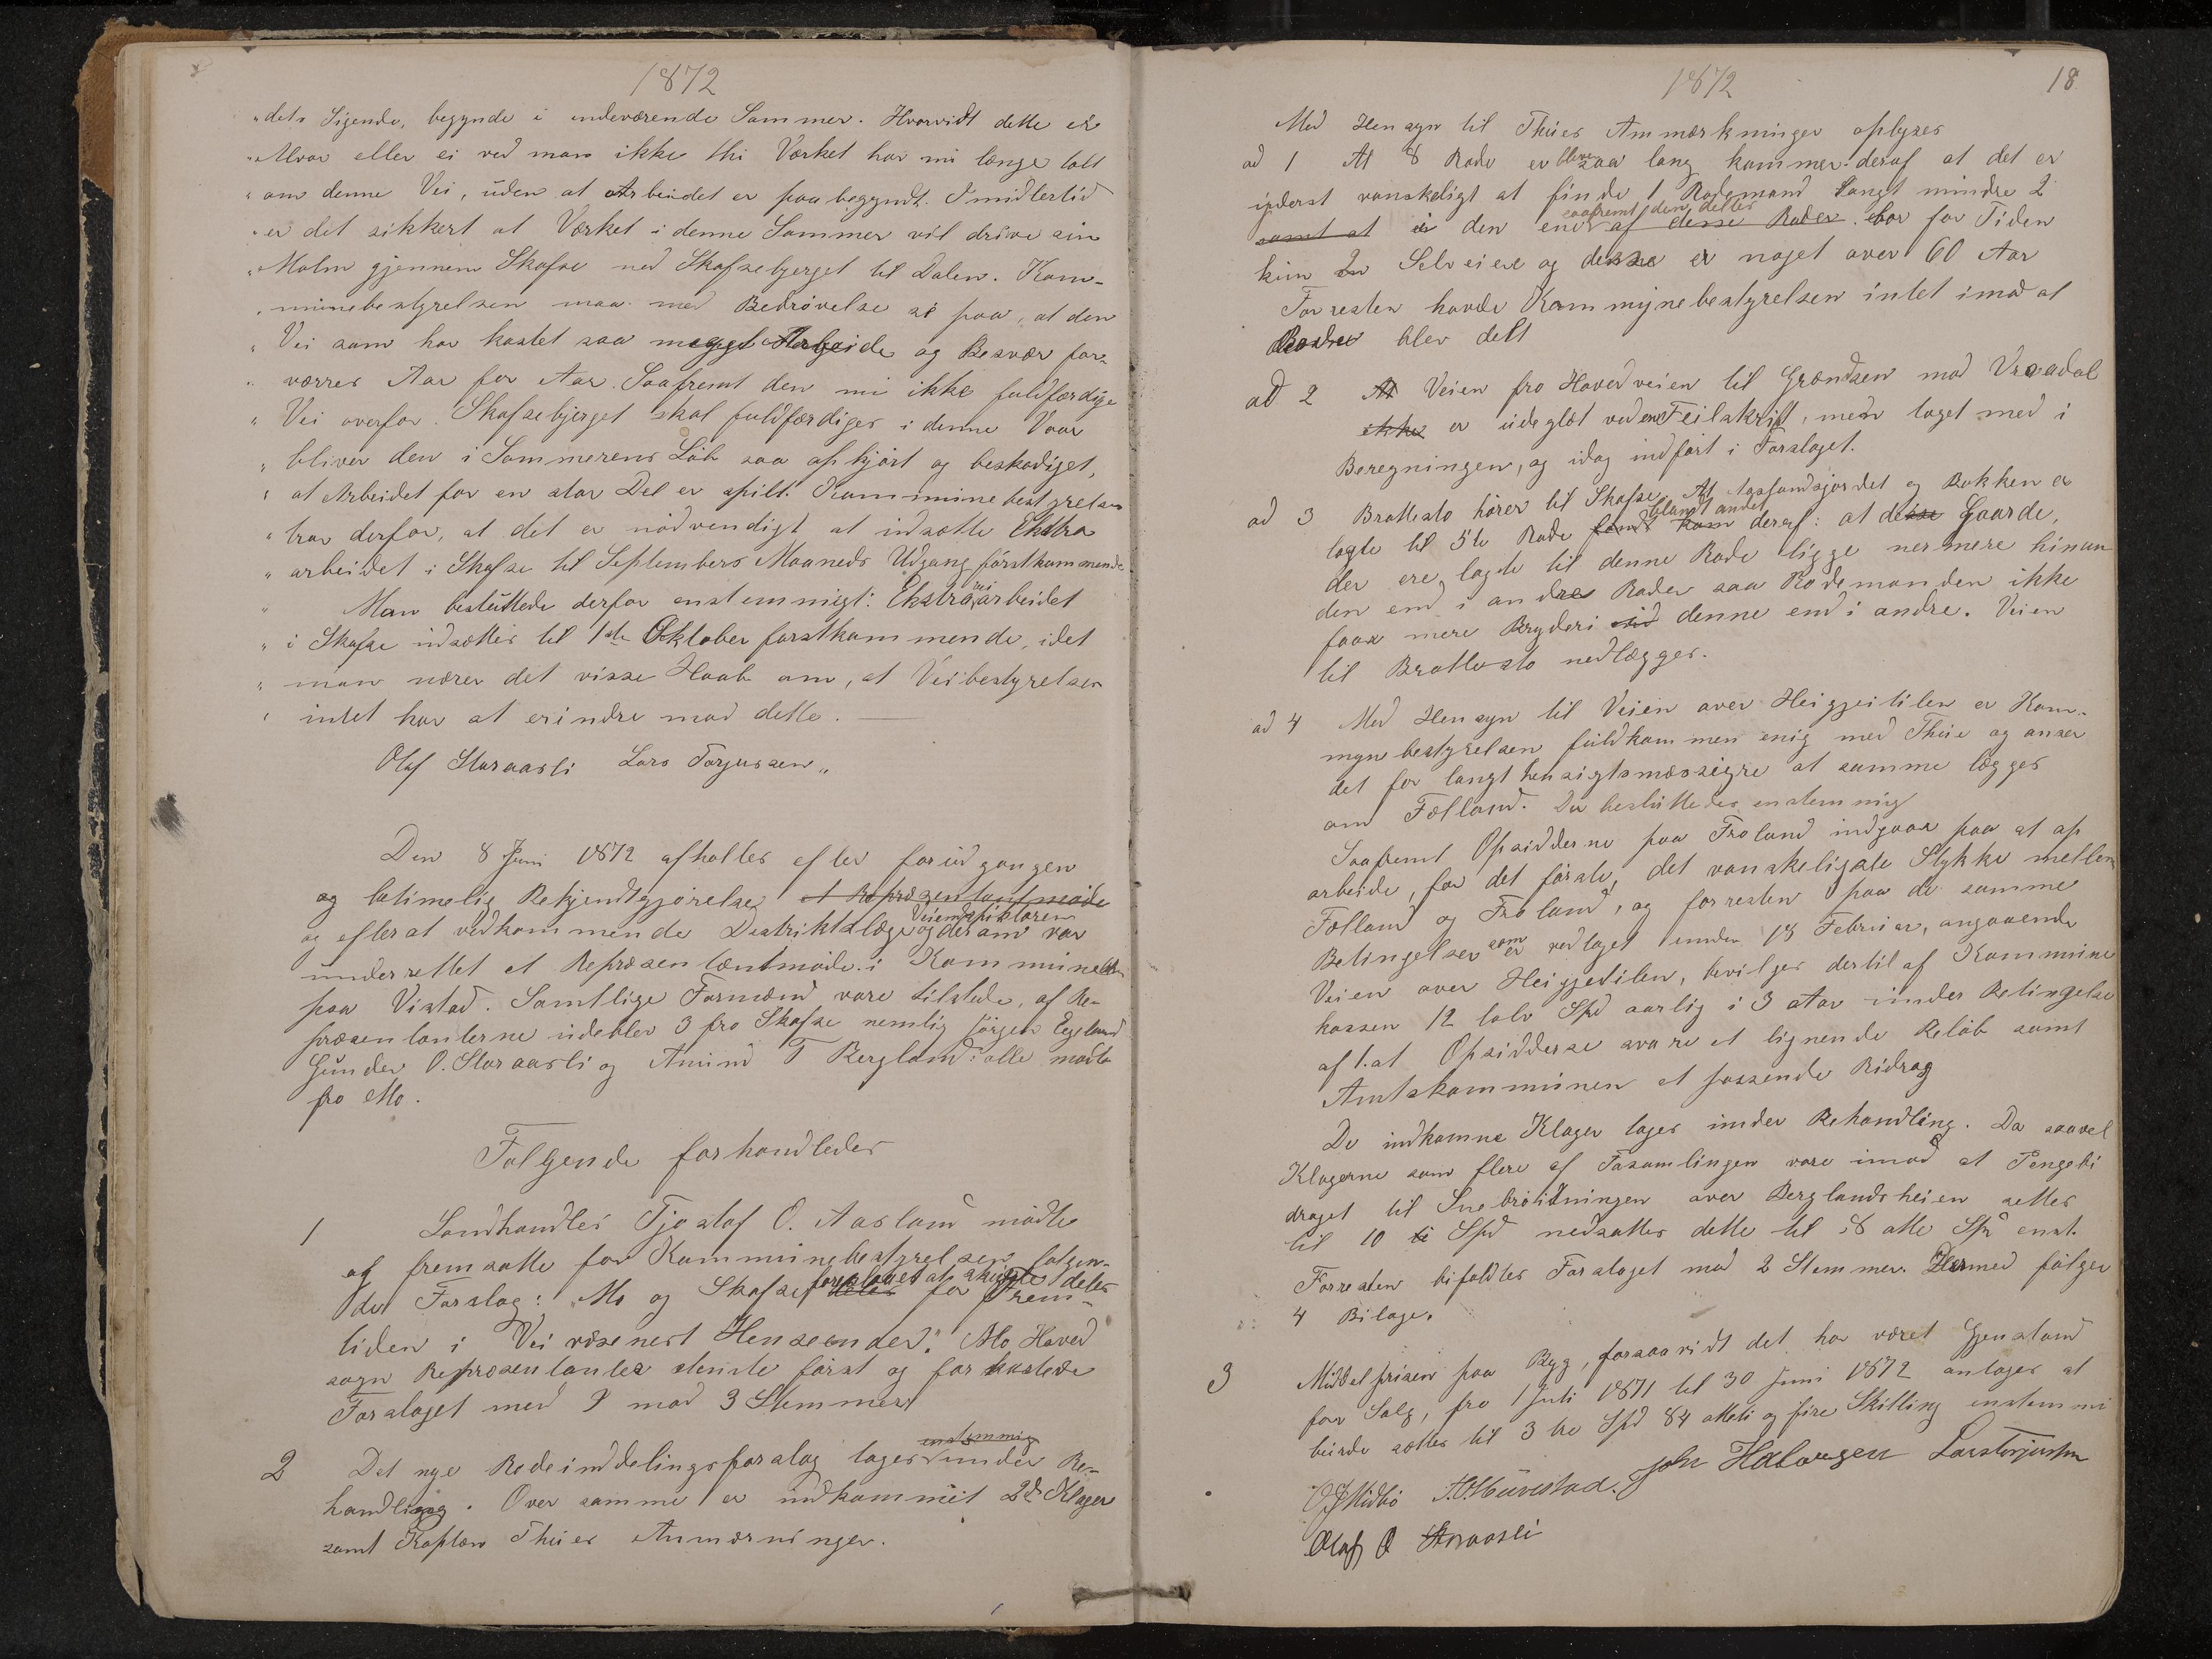 1872
"dets Sigende, begynde i indeværende Sommer. Hvorvidt dette er
"Alvor eller ei ved man ikke thi Værket har nu længe talt
"om denne Vei, uden at Arbeidet er paabegyndt. Imidlertid
"er det sikkert at Værket i denne Sommer vil drive sin
"Malm gjennem Skafse ned Skafsebjerget til Dalen. Kom-
"munebestyrelsen maa med Bedrøvelse se paa, at den
"Vei som har kostet saa meget Arbeide og Besvær for-
"værres Aar for Aar. Saafremt den nu ikke fuldfærdige
"Vei overfor Skafsebjerget skal fuldfærdiges i denne Vaar
"bliver den i Sommerens Løb saa opkjørt og beskadiget,
"at Arbeidet for en stor Del er spilt. Kommunebestyrelsen
"tror derfor, at det er nødvendigt at udsætte Ekstra
"arbeidet i Skafse til Septembers Maaneds Udgang førstkommende.
"Man besluttede derfor enstemmigt: Ekstraarbeidet
"i Skafse udsættes til 1ste Oktober førstkommende, idet
"man nærer det visse Haab om, at Veibestyrelsen
"intet har at erindre mod dette.
Olaf Storaasli Lars Torjussen"
Den 8 Juni 1872 afholtes efter forudgangen
og betimelig Bekjendtgjørelse et Repræsentantmøde
og efterat vedkommende Distriktslæge og Veiinspektøren derom var
underrettet et Repræsentantmøde i Kommunelok
paa Vistad. Samtlige Formænd vare tilstede, af Re-
præsentanterne udeblev 3 fra Skafse nemlig Jørgen Egeland
Gunder O. Storaasli og Amund T Bergland: alle mødte
fra Mo.
Følgende forhandledes
1 Landhandler Tjostof O. Aasland mødte
og fremsatte for Kommunebestyrelsen følgen-
de Forslag: Mo og Skafse foreslaaes at skulle deles deles for Frem-
tiden i Veivæsenest Henseender. Mo Hoved
sogn Repræsentanter stemte først og forkastede
Forslaget med 9 mod 3 Stemmer
2 Det nye Rodeinddelingsforslag toges enstemmig under Be-
handling. Over samme er indkommet 2de Klager
samt Kaptein Thues Anmærninger.
1872 18
Med Hensyn til Thues Anmærkninger oplyses
ad 1 At 8 Rode er bleven saa lang kommer deraf at det er
yderst vanskeligt at finde 1 Rodemand langt mindre 2
samt at i den ene saafremt den deltes af disse Roder bor for Tiden
kun en Selveier og denne er noget over 60 Aar
Forresten havde Kommynebestyrelsen intet imod at
Roden blev delt
ad 2 At Veien fra Hovedveien til Grændsen mod Vraadal
ikke er udeglæt ved en Feilskrift, men taget med i
Beregningen, og idag indført i Forslaget.
ad 3 Brattestø hører til Skafse. At Aasland gjordet og Bakken er
lagte til 5te Rode kom blandt andet deraf: at disse Gaarde,
der ere lagte til denne Rode ligge nermere hinan
den end i andre Roder saa Rodemanden ikke
faar mere Bryderi ved denne end i andre. Veien
til Brattestø nedlægges.
ad 4 Med Hensyn til Veien over Heigjeitilen er Kom-
mynebestyrelsen fuldkommen enig med Thue og anser
det for langt hensigtsmæssigre at samme lægges
om Fælland. Da besluttedes enstemmig
Saafremt Opsidderne paa Froland indgaar paa at op
arbeide, for det første, det vanskeligste Stykke mellem
Fælland og Froland, og forresten paa de samme
Betingelser som er vedtaget under 13 Februar, angaaende
Veien over Heigjeitilen, bevilges dertil af Kommune
kassen 12 tolv Spd aarlig i 3 Aar under Betingelse
af 1. at Opsidderne svare et lignende Beløb samt
Amtskommunen et passende Bidrag
De indkomne Klager toges under Behandling. Da saavel
Klagerne som flere af Fosamlingen vare imod at Pengebi
draget til Snebrøitningen over Berglandsheien settes
til 10 ti Spd nedsattes dette til 8 otte Spd enst.
Forresten bifaldtes Forslaget mod 2 Stemmer. Hermed følger
4 Bilage.
3 Middelprisen paa Byg, forsaavidt det har været Gjenstand
for Salg, fra 1 Juli 1871 til 30 Juni 1872 antages at
burde sættes til 3 tre Spd 84 otteti og fire Skilling enstemmi
OJMidbø John Halvorsen Lars Torjussen
Olaf O Storaasli